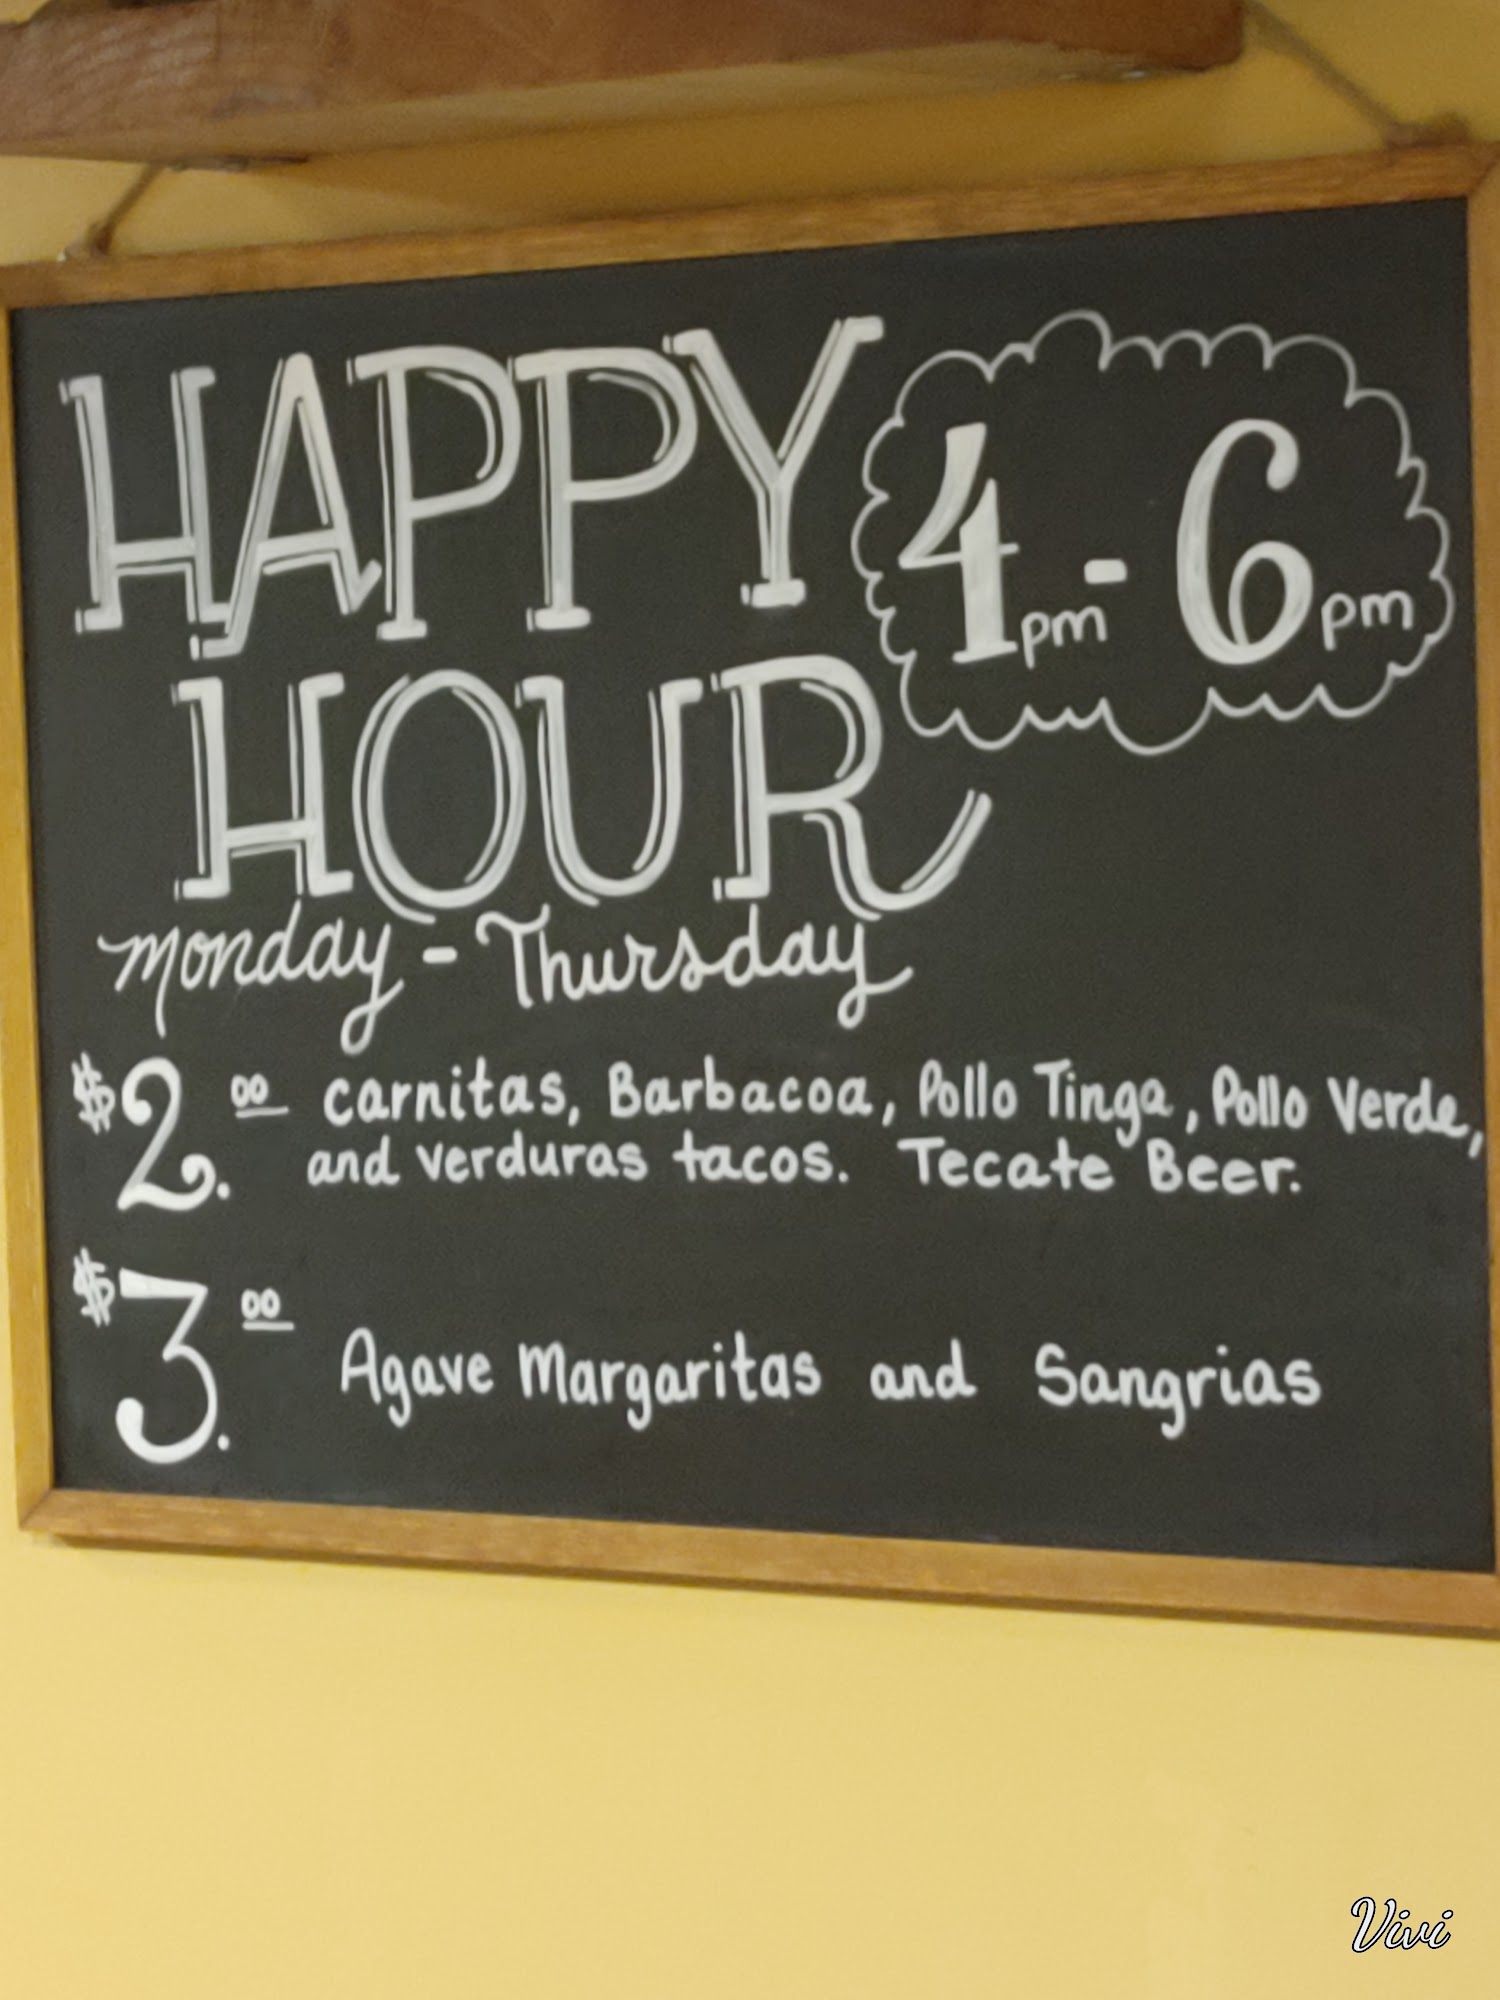 HAPPY
4pm - 6pm
HOUR
Monday - Thursday
$2.00 carnitas, Barbacoa, Pollo Tinga, Pollo Verde,
and verduras tacos. Tecate Beer.
$3.00 Agave Margaritas and Sangrias
Vivi